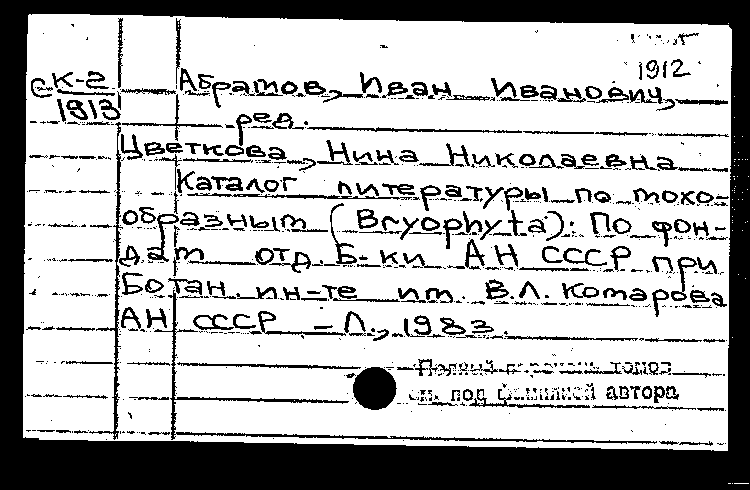 1912
сК-2
1913
Абрамов, Иван Иванович,
ред.
Цветкова, Нина Николаевна
Каталог литературы по мохо-
образным (Bryophyta): По фон-
дам отд. Б-ки АН СССР при
Ботан. ин-те им. В.Л. Комарова
АН СССР – Л., 1983.
Полный перечень томов
см. под фамилией автора